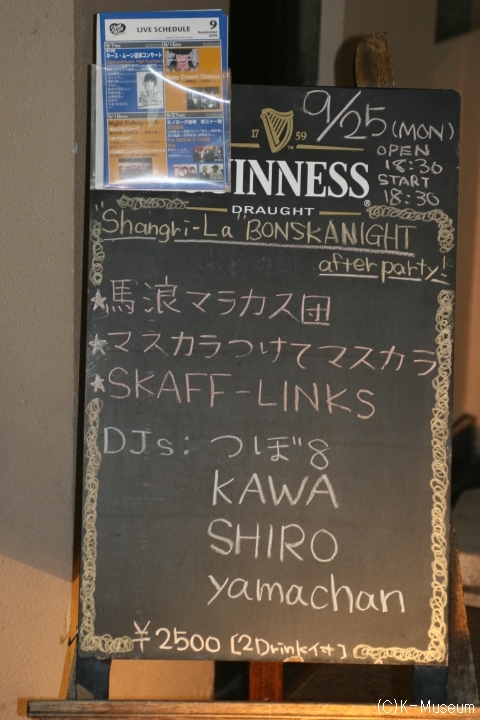 LIVE SCHEDULE 9
September
17 59
GUINNESS
DRAUGHT
9/25 (MON)
OPEN
18:30
START
18:30
"Shangri-La BONSKANIGHT
afterparty!
★馬浪マラカス団
★マスカラつけてマスカラ
★SKAFF-LINKS
DJs: つぼ8
KAWA
SHIRO
yamachan
¥2500 [2Drink付]
(C)K-Museum